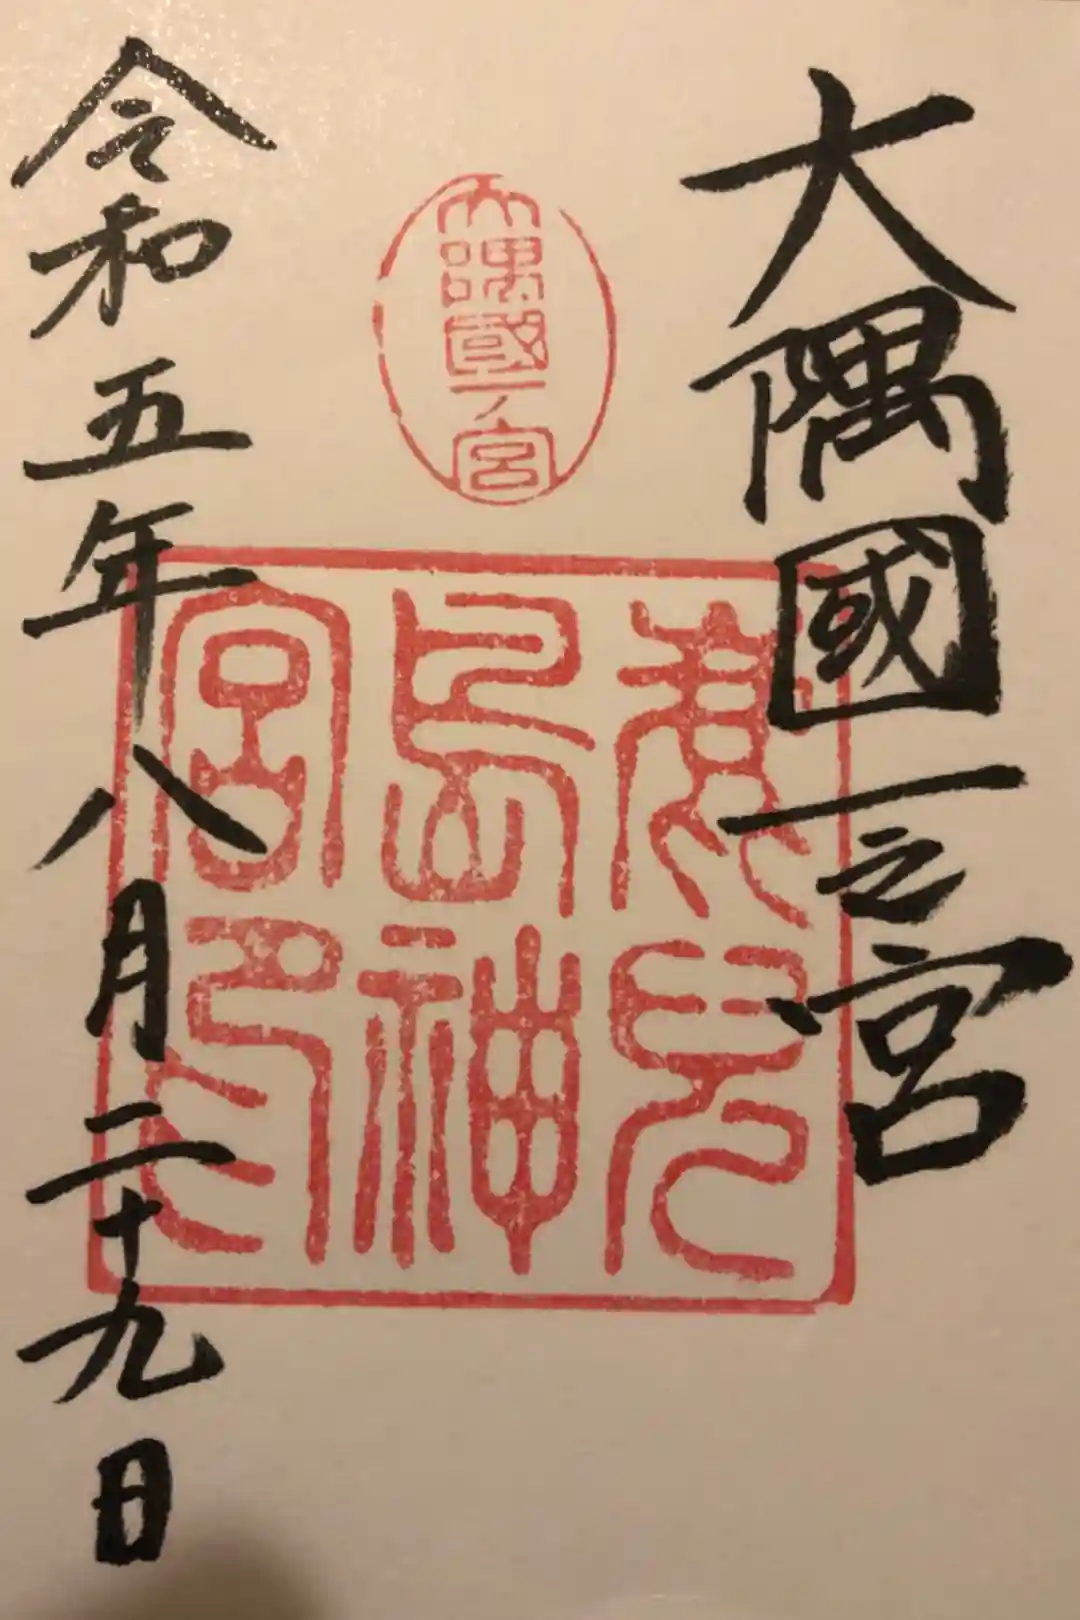 大隅國一之宮
大隅國一ノ宮
鹿兒
島神
宮印
令和五年八月二十九日